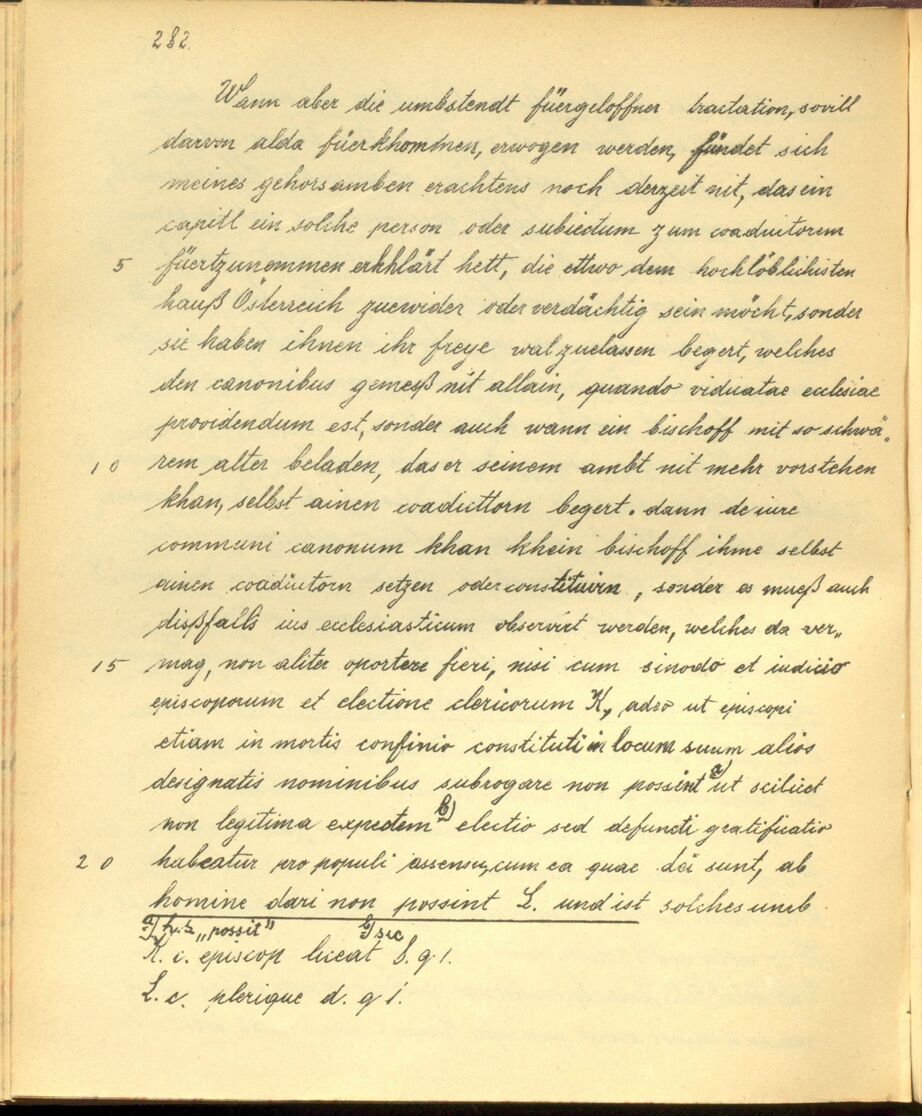 282.
Wann aber die umbstendt füergeloffner tractation, sovill
darvon alda füerkhommen, erwogen werden, fündet sich
meines gehorsamben erachtens noch derzeit nit, das ein
capitl ein solche person oder subiectum zum coadiutorem
5 füertzunemmen erkhlärt hett, die ettwo dem hochlöblichisten
hauß Österreich zuewider oder verdächtig sein möcht, sonder
sie haben ihnen ihr freye wal zuelassen begert, welches
den canonibus gemeß nit allain, quando viduatae ecclesiae
providendum est, sonder auch wann ein bischoff mit so schwä„
10 rem alter beladen, das er seinem ambt nit mehr vorstehen
khan, selbst ainen coadiuttorn begert. dann de iure
communi canonum khan khein bischoff ihme selbst
ainen coadiutorn setzen oder constituirn, sonder es mueß auch
dißfalls ius ecclesiasticum observirt werden, welches da ver„
15 mag, non aliter oportere fieri, nisi cum sinodo et iudicio
episcoporum et electione clericorum K, adeo ut episcopi
etiam in mortis confinio constituti in locum suum alios
designatis nominibus subrogare non possint a) ut scilicet
non legitima expectem b) electio sed defuncti gratificatio
20 habeatur pro populi assensu, cum ea quae dei sunt, ab
homine dari non possint L. und ist solches umb
a) h.s „possit" b) sic
K. c. episcop liceat 8. q 1.
L. c. plerique d. q i.